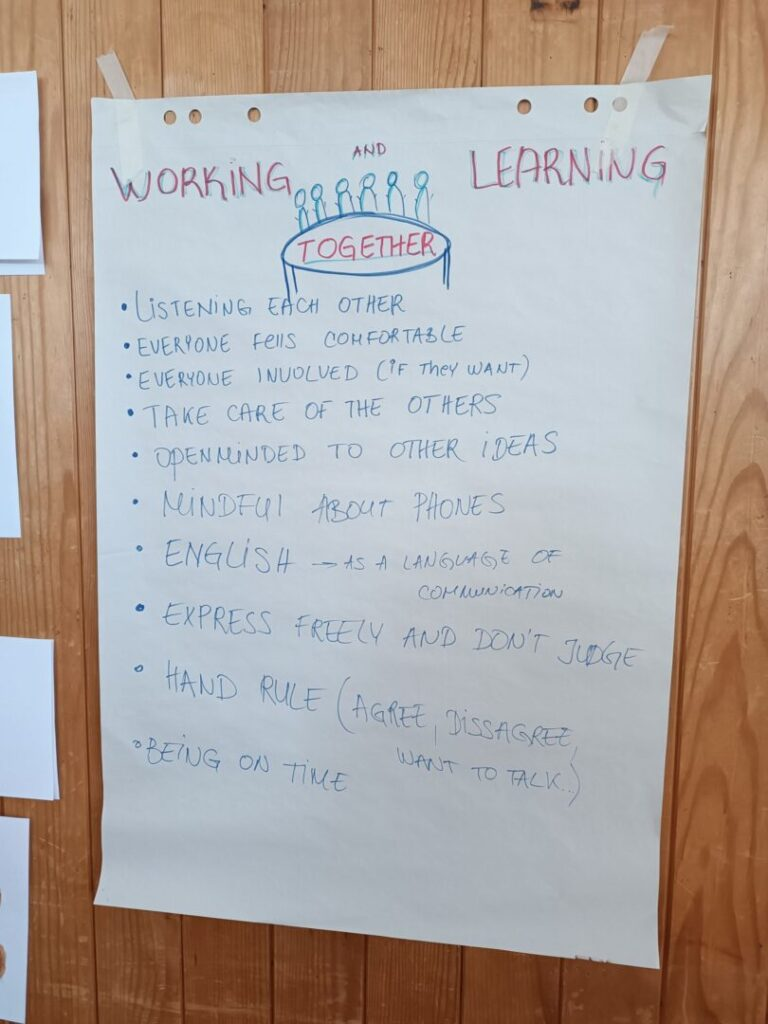 WORKING AND LEARNING
TOGETHER
• LISTENING EACH OTHER
• EVERYONE FEllS COMFORTABLE
• EVERYONE INVOLVED (iF THEY WANT)
• TAKE CARE OF THE OTHERS
• OPENMINDED TO OTHER IDEAS
• MINDFUl ABOUT PHONES
• ENGLISH → AS A LANGUAGE OF
COMMUNICATION
• EXPRESS FREELY AND DON'T JUDGE
• HAND RULE (AGREE, DISSAGREE,
WANT TO TALK..)
• BEING ON TIME